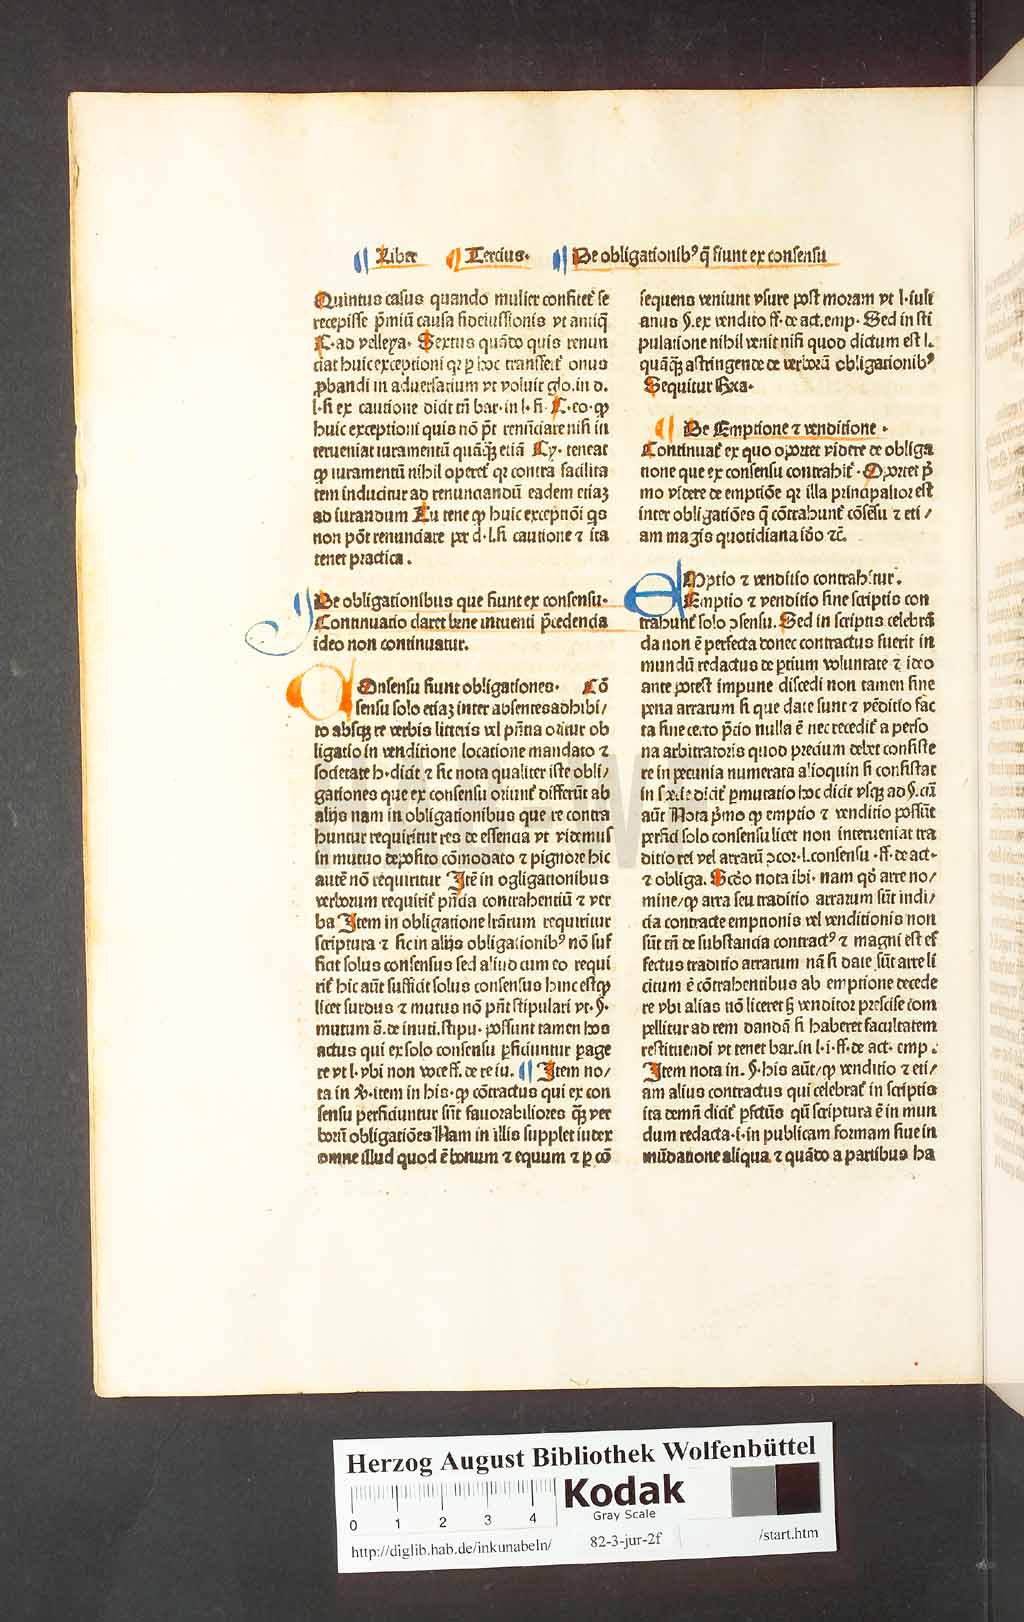 Liber Tercius. De obligationibꝰ q̄ fiunt ex consensu
Quintus casus quando mulier confitet᷑ se
recepisse p̄miū causa fideiussionis vt antiq̄
C. ad velleya. Sextus quādo quis renun
ciat huic exceptioni qꝛ ꝑ hoc transfert᷑ onus
ꝓbandi in aduersarium vt voluit glo. in d.
l. fi ex cautione dicit tn̄ bar. in l. fi. C. eo. ꝙ
huic exceptioni quis nō pōt renūciare nisi in
terueniat iuramentū quāqꝫ etiā Cy. teneat
ꝙ iuramentū nihil operet᷑ qꝛ contra facilita
tem inducitur ad renunciandū eadem etiaꝫ
ad iurandum Tu tene ꝙ huic exceptiōi qs
non pōt renunciare per d. l. si cautione ⁊ ita
tenet practica.
De obligationibus que fiunt ex consensu.
Continuatio claret bene intuenti p̄cedencia
ideo non continuatur.
COnsensu fiunt obligationes. Cō
sensu solo etiaꝫ inter absentes adhibi/
to absqꝫ re verbis litteris vel pn̄tia oritur ob
ligatio in venditione locatione mandato ⁊
societate h. dicit ⁊ sic nota qualiter iste obli/
gationes que ex consensu oriunt᷑ differūt ab
alijs nam in obligationibus que re contra
huntur requiritur res de essencia vt videmus
in mutuo deposito cōmodato ⁊ pignore hic
autē nō requiritur Itē in ogligationibus
verborum requirit᷑ pn̄cia contrahentiū ⁊ ver
ba Item in obligatione lrārum requiritur
scriptura ⁊ sic in alijs obligationibꝰ nō suf
ficit solus consensus sed aliud cum eo requi
rit᷑ hic aūt sufficit solus consensus hinc est ꝙ
licet surdus ⁊ mutus nō pn̄t stipulari vt. §.
mutum ō. de inuti. stipu. possunt tamen hos
actus qui ex solo consensu ꝑficiuntur ꝑage
re vt l. vbi non voce ff. de re iu. Item no/
ta in §. item in his. ꝙ cōtractus qui ex con
sensu perficiuntur sūt fauorabiliores qꝫ ver
borū obligatiōes Nam in illis supplet iudex
omne illud quod ē bonum ⁊ equum ⁊ ꝑ cō
sequens veniunt vsure post moram vt l. iuli
anus §. ex vendito ff. de act. emp. Sed in sti
pulatione nihil venit nisi quod dictum est l.
quāqꝫ astringende de verborū obligationibꝰ
Sequitur
De Emptione ⁊ venditione.
Continuat᷑ ex quo oportet videre de obliga
tione que ex consensu contrahit᷑. Oportet p̄
mo videre de emptiōe qꝛ illa principalior est
inter obligatiōes q̄ cōtrahunt᷑ cōsēsu ⁊ eti/
am magis quotidiana iđo ⁊c̄.
EMptio ⁊ venditio contrahitur.
Emptio ⁊ venditio sine scriptis con
trahunt᷑ solo ↄsensu. Sed in scriptis celebrā
da non ē perfecta donec contractus fuerit in
mundū redactus de ꝑtium voluntate ⁊ ideo
ante potest impune discedi non tamen sine
pena arrarum si que date sunt ⁊ vēditio fac
ta sine certo p̄cio nulla ē nec recedit᷑ a perso
na arbitratoris quod precium debet consiste
re in pecunia numerata alioquin si consistat
in specie dicit᷑ ꝑmutatio hoc dicit vsqꝫ ad §. cū
aūt Nota p̄mo ꝙ emptio ⁊ venditio possūt
perfici solo consensu licet non interueniat tra
ditio rei vel arrarū ↄcor. l. consensu. ff. de act.
⁊ obliga. Scđo nota ibi. nam qđ arre no/
mine/ ꝙ arra seu traditio arrarum sūt indi/
cia contracte emptionis vel venditionis non
sūt tn̄ de substancia contractꝰ ⁊ magni est ef
fectus traditio arrarum nā si date sūt arre li
citum ē cōtrahentibus ab emptione recede
re vbi alias nō liceret ꝫ venditor prescise com
pellitur ad rem dandā si haberet facultatem
restituendi vt tenet bar. in l. i. ff. de act. emp.
Item nota in. §. his aūt/ ꝙ venditio ⁊ eti/
am alius contractus qui celebrat᷑ in scriptis
ita demū dicit᷑ ꝑfctūs qn̄ scriptura ē in mun
dum redacta. i. in publicam formam siue in
mūdatione aliqua ⁊ quādo a partibus ha
Herzog August Bibliothek Wolfenbüttel
0 1 2 3 4
Kodak
Gray Scale
http://diglib.hab.de/inkunabeln/ 82-3-jur-2f /start.htm